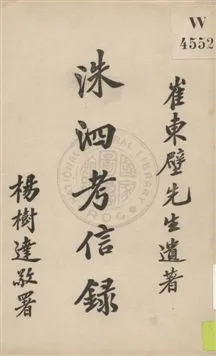 W
4552
崔東壁先生遺著
洙泗考信錄
楊樹達敬署
NATIONAL CENTRAL LIBRARY
R.O.C.